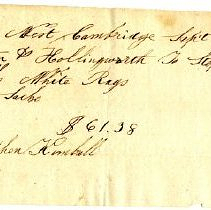 West Cambridge Sept
& Hollingworth To Step
White Rags
Sacks
$61.38
phen Kimball